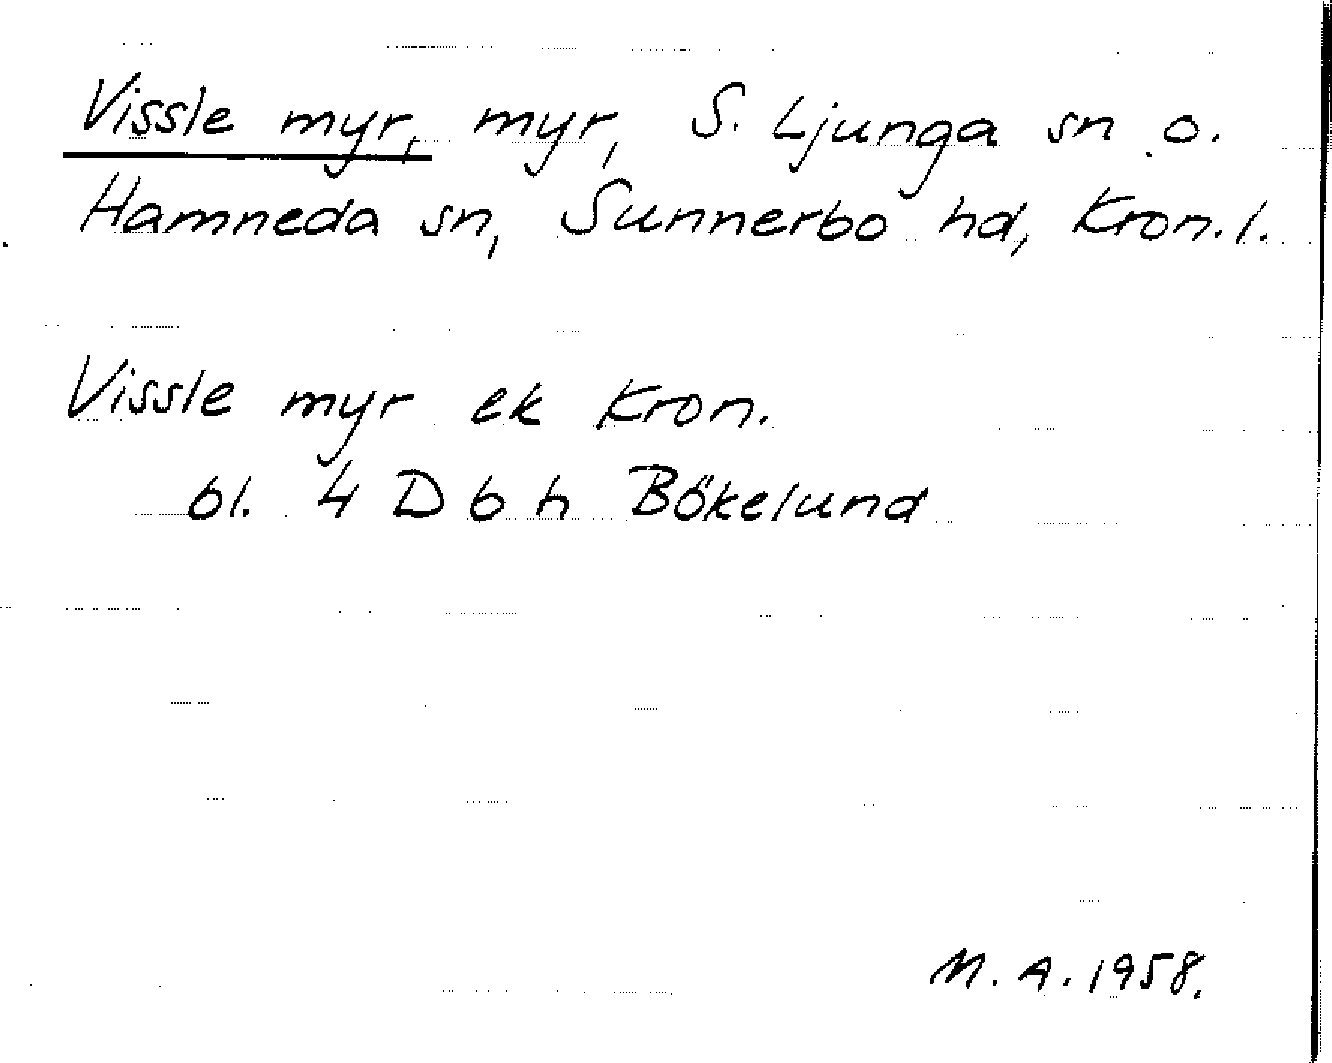 Vissle myr, myr, S. Ljunga sn o.
Hamneda sn, Sunnerbo hd, Kron. l.
Vissle myr ek Kron.
bl. 4 D b h Bökelund
M. A. 1958.